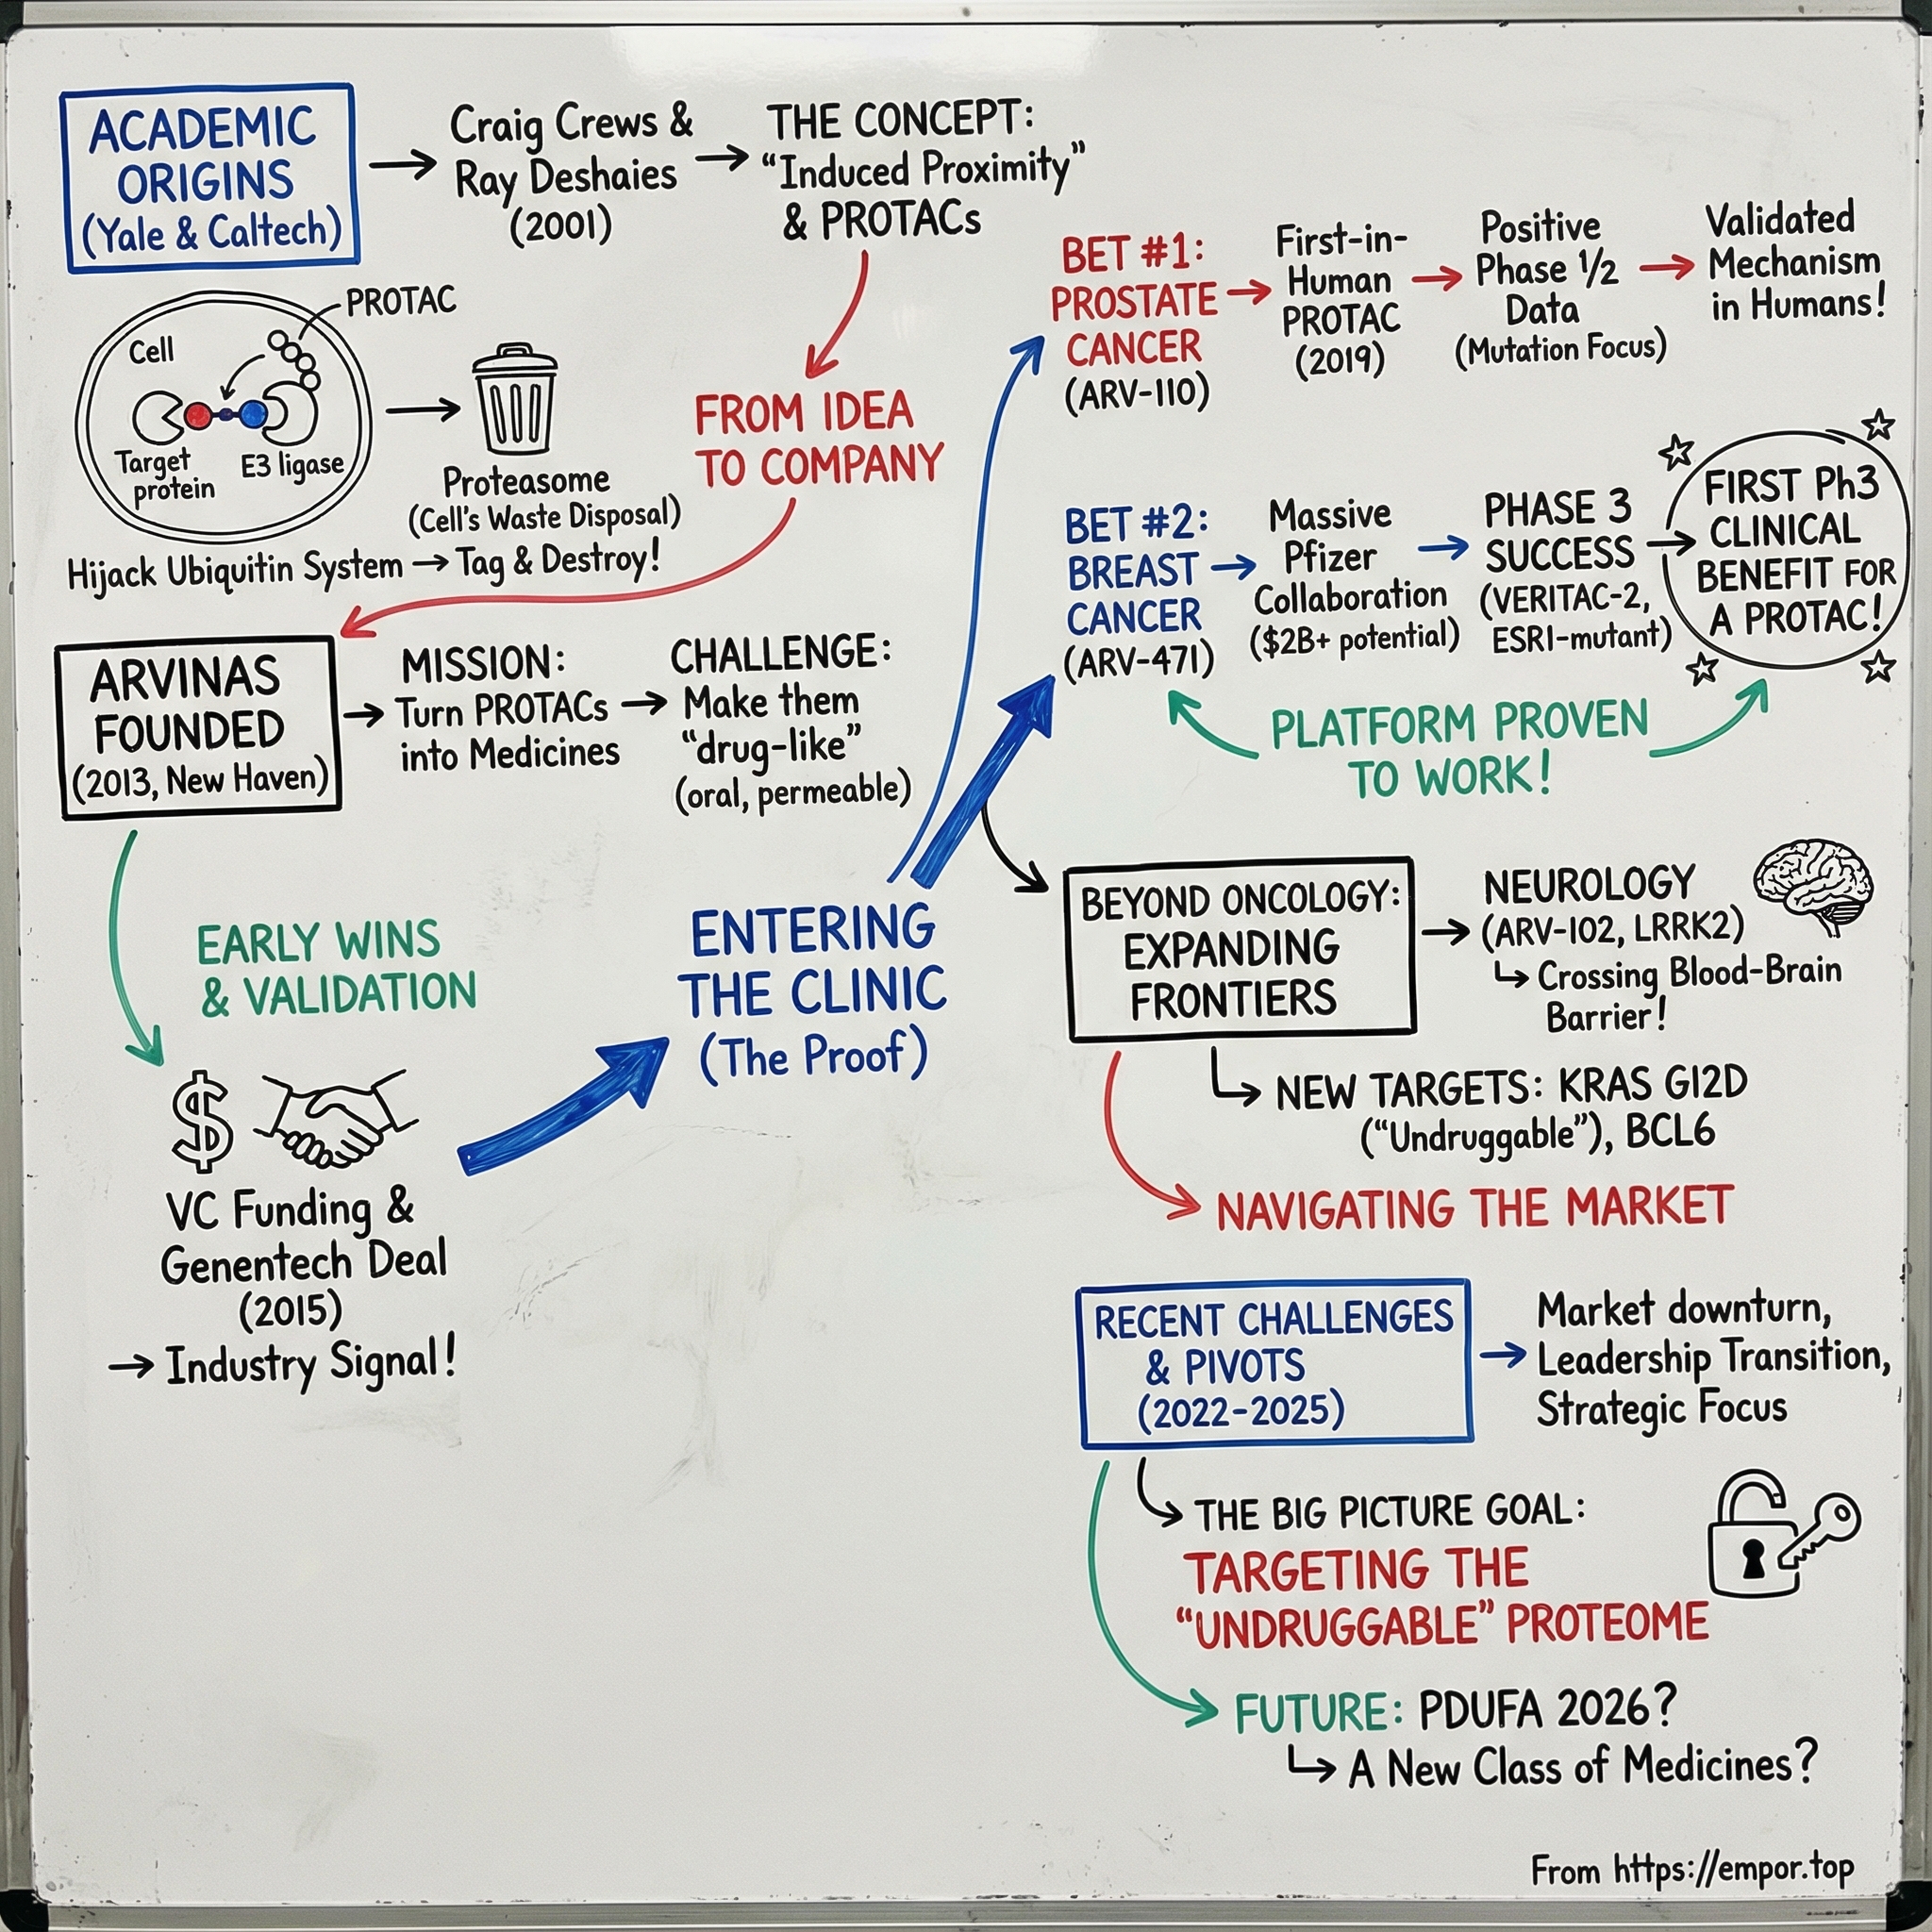 ACADEMIC
ORIGINS
(Yale & Caltech)
Craig Crews &
Ray Deshaies
(2001)
THE CONCEPT:
“Induced Proximity”
& PROTACs
PROTAC
Cell
Target
protein
E3 ligase
Proteasome
(Cell's Waste Disposal)
Hijack Ubiquitin System → Tag & Destroy!
FROM IDEA
TO COMPANY
ARVINAS
FOUNDED
(2013, New Haven)
MISSION:
Turn PROTACs
into Medicines
CHALLENGE:
Make them
“drug-like”
(oral, permeable)
EARLY WINS
& VALIDATION
$
VC Funding &
Genentech Deal
(2015)
→ Industry Signal!
ENTERING
THE CLINIC
(The Proof)
BET #1:
PROSTATE
CANCER
(ARV-110)
First-in-
Human
PROTAC
(2019)
Positive
Phase 1/2
Data
(Mutation Focus)
Validated
Mechanism
in Humans!
BET #2:
BREAST
CANCER
(ARV-471)
Massive
Pfizer
Collaboration
($2B+ potential)
PHASE 3
SUCCESS
(VERITAC-2,
ESRI-mutant)
FIRST Ph3
CLINICAL
BENEFIT FOR
A PROTAC!
PLATFORM PROVEN
TO WORK!
BEYOND ONCOLOGY:
EXPANDING
FRONTIERS
NEUROLOGY
(ARV-102, LRRK2)
↳ Crossing Blood-Brain
Barrier!
↳ NEW TARGETS: KRAS G12D
(“Undruggable”), BCL6
NAVIGATING THE MARKET
RECENT CHALLENGES
& PIVOTS
(2022-2025)
Market downturn,
Leadership Transition,
Strategic Focus
THE BIG PICTURE GOAL:
TARGETING THE
“UNDRUGGABLE” PROTEOME
FUTURE: PDUFA 2026?
↳ A New Class of Medicines?
From https://empor.top